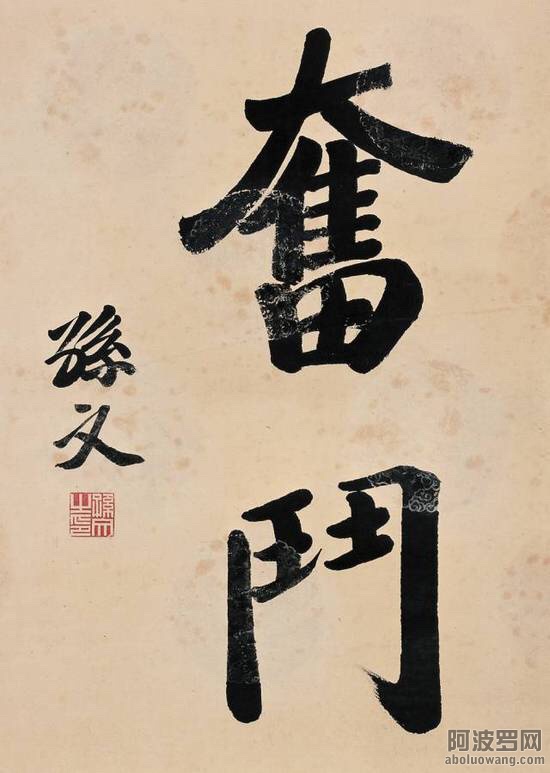 奮鬥
孫文
孫文之印
阿波罗网
aboluowang.com